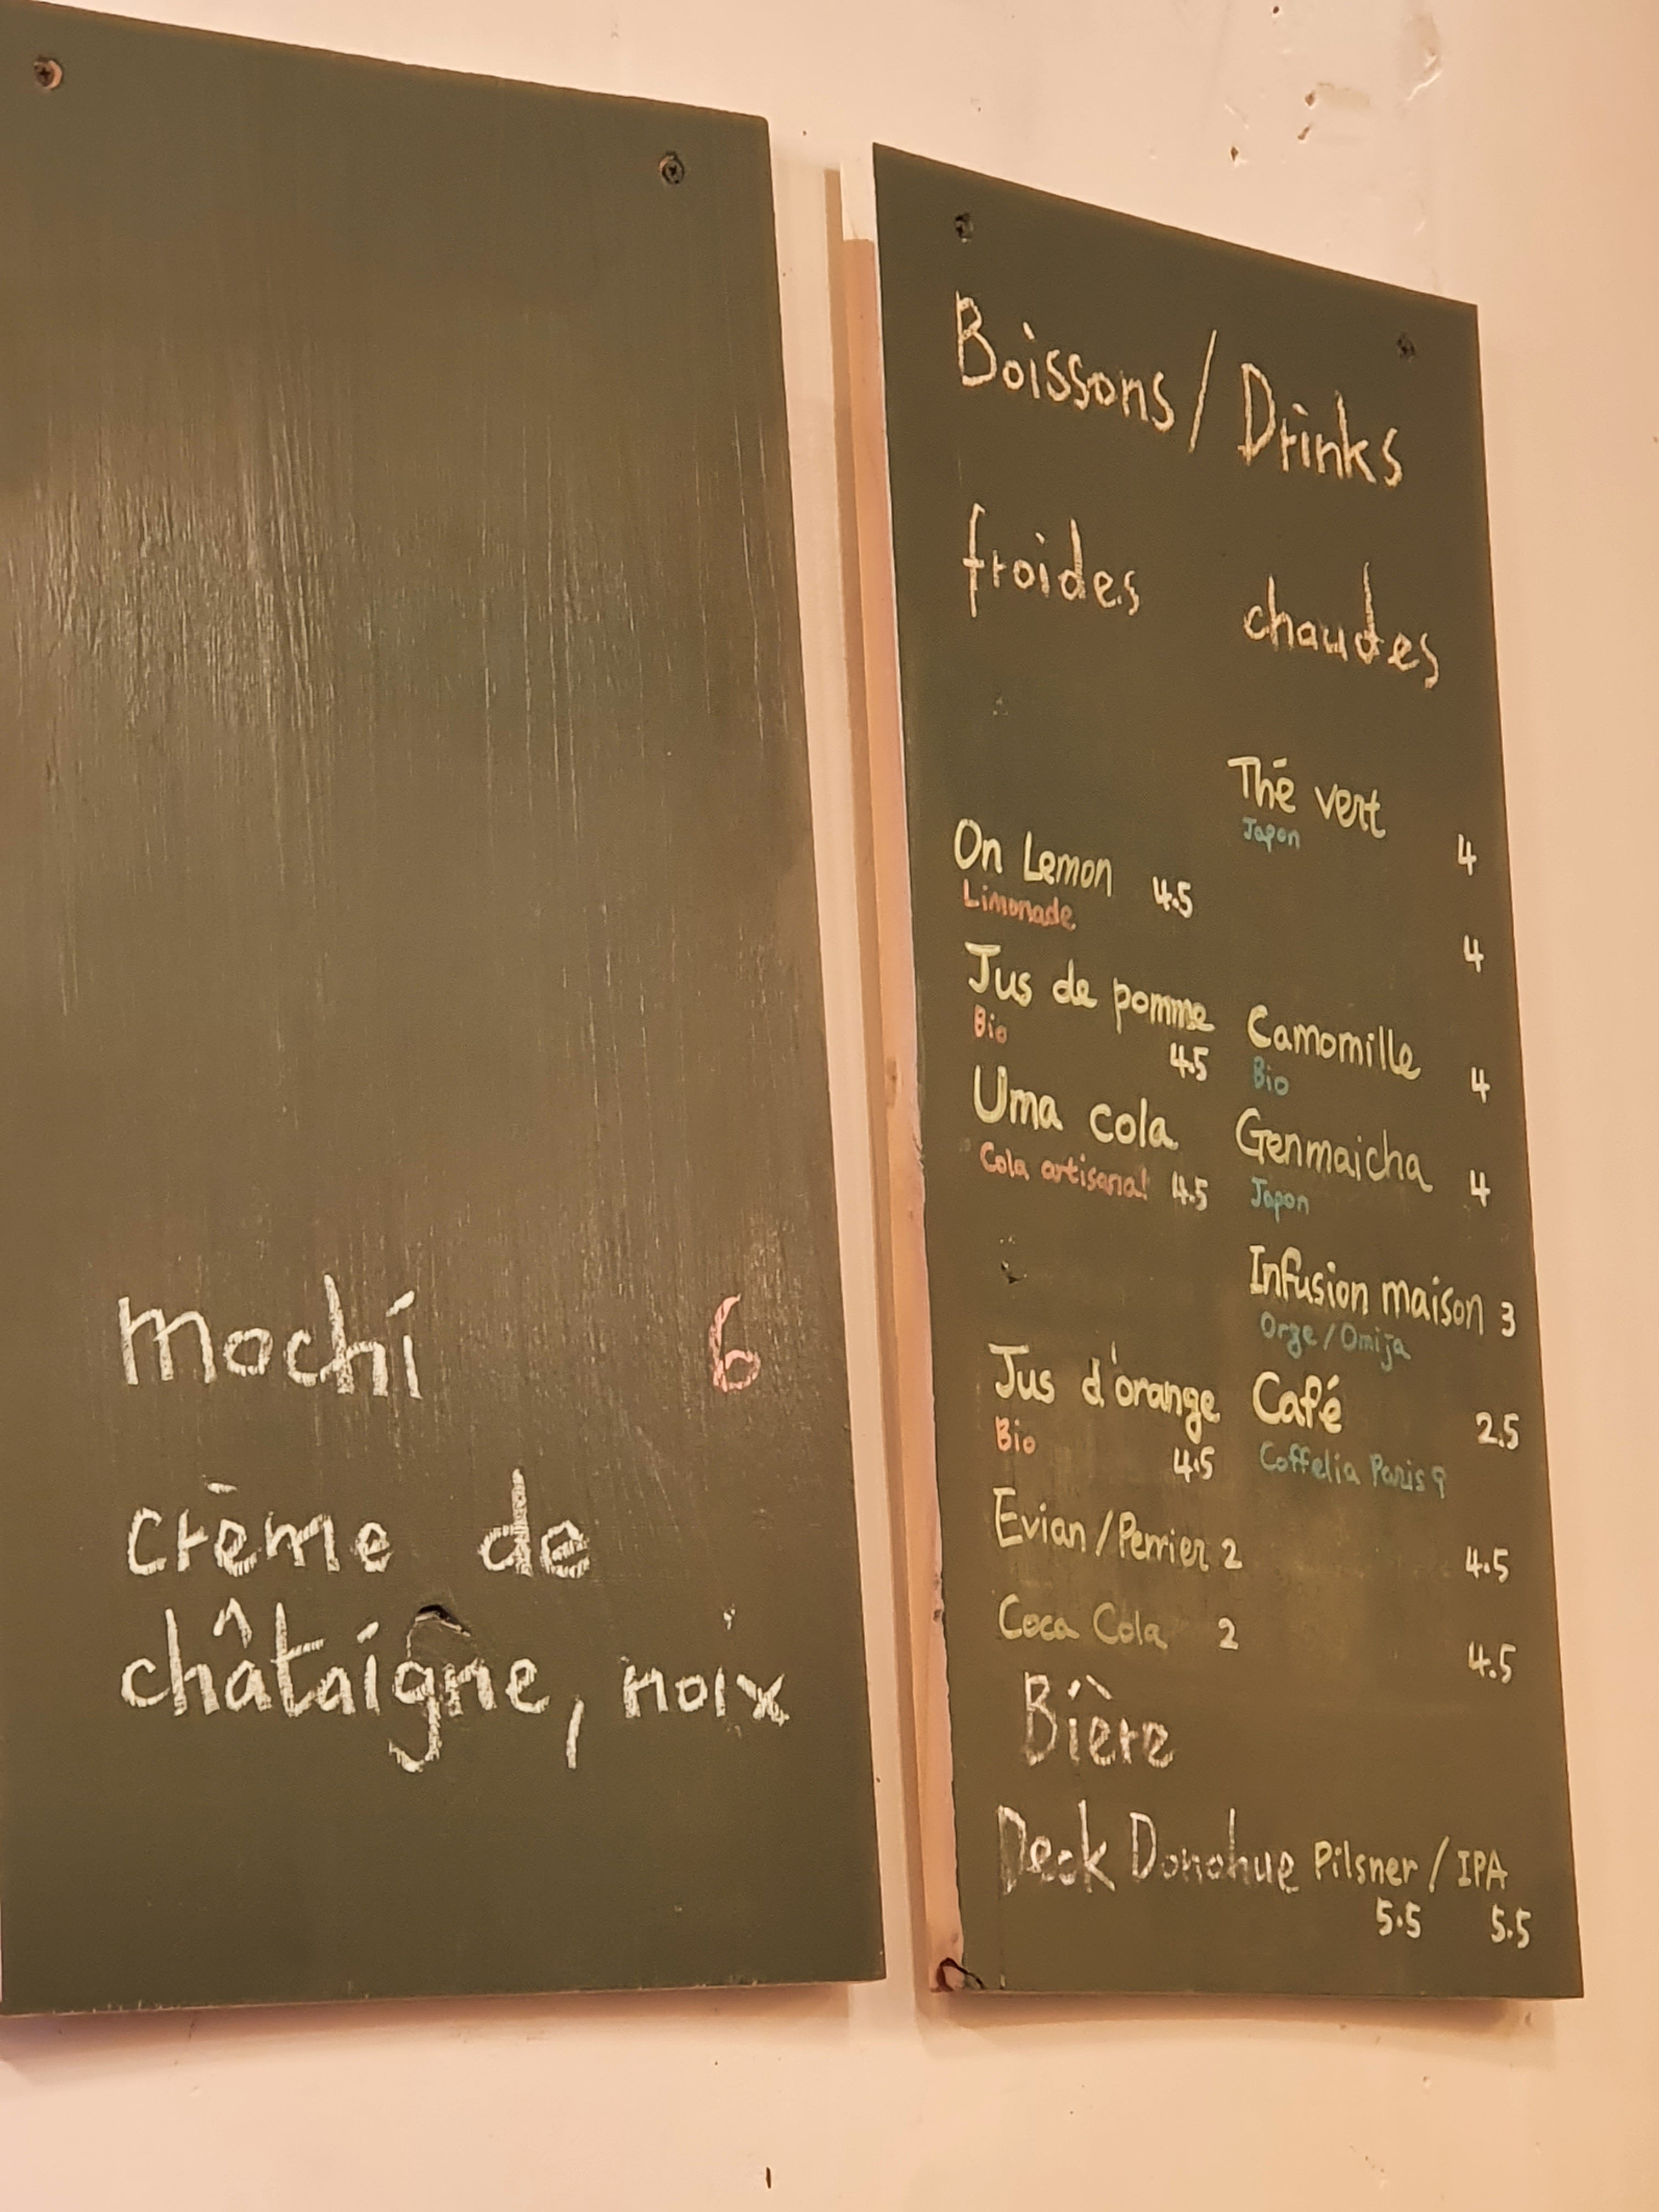 mochi 6
crème de
châtaigne, noix
Boissons / Drinks
froides
On Lemon 4.5
Limonade
Jus de pomme
Bio 4.5
Uma cola
Cola artisanal 4.5
Jus d'orange
Bio 4.5
Evian / Perrier 2
Coca Cola 2
chaudes
Thé vert 4
Japon
4
Camomille 4
Bio
Genmaicha 4
Japon
Infusion maison 3
Orge / Omija
Café 2.5
Coffelia Paris 9
4.5
4.5
Bière
Deck Donohue Pilsner / IPA
5.5 5.5